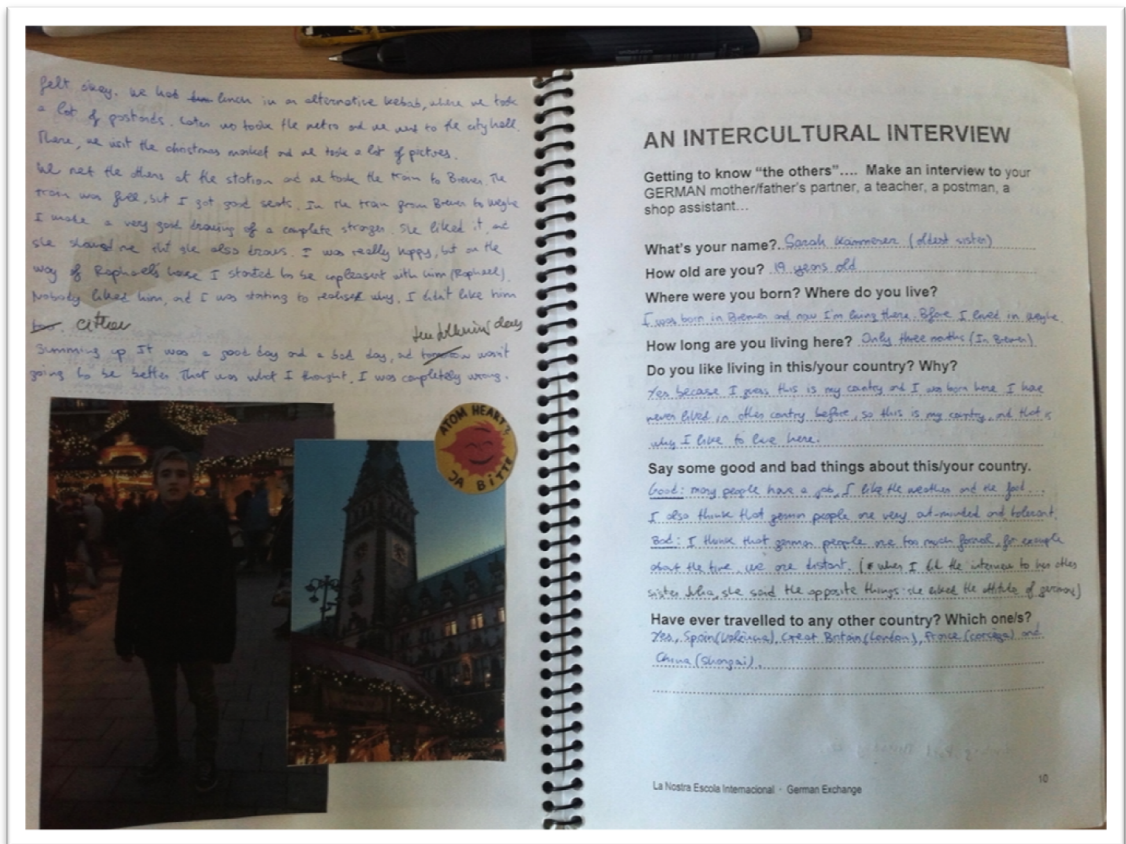 felt okay. We had lunch in an alternative kebab, where we took
a lot of postards. Later we tooke the metro and we went to the city hall.
There, we visit the christmas market and we took a lot of pictures.
We met the others at the station and we took the train to Bremen. The
train was full, but I got good seats. In the train from Bremen to Weyhe
I made a very good drawing of a complete stranger. She liked it, and
she showed me that she also draws. I was really happy, but on the
way of Raphael's house I started to be unpleasent with him (Raphael).
Nobody liked him, and I was starting to realised why. I didn't like him
either
days
Summing up It was a good day and a bad day, and wasn't
going to be better. That was what I thought. I was completely wrong.
ATOM HEART'S
JA BITTE
AN INTERCULTURAL INTERVIEW
Getting to know “the others”…. Make an interview to your
GERMAN mother/father's partner, a teacher, a postman, a
shop assistant…
What's your name? Sarah (oldest sister)
How old are you? 19 years old
Where were you born? Where do you live?
I was born in Bremen and now I'm living there. Before I lived in Weyhe.
How long are you living here? Only three months (In Bremen)
Do you like living in this/your country? Why?
Yes because I guess this is my country and I was born here. I have
never lived in other country before, so this is my country, and that is
why I like to live here.
Say some good and bad things about this/your country.
Good: many people have a job, I like the weather and the food...
I also think that german people are very and tolerant.
Bad: I think that german people are too much formal, for example
about the time, we are distant. (* when I did the interview to her other
sister Julia, she said the opposite things: she liked the attitude of germans)
Have ever travelled to any other country? Which one/s?
Yes, Spain (València), Great Britain (London), France (Corsega) and
China (Shangai).
La Nostra Escola Internacional · German Exchange
10